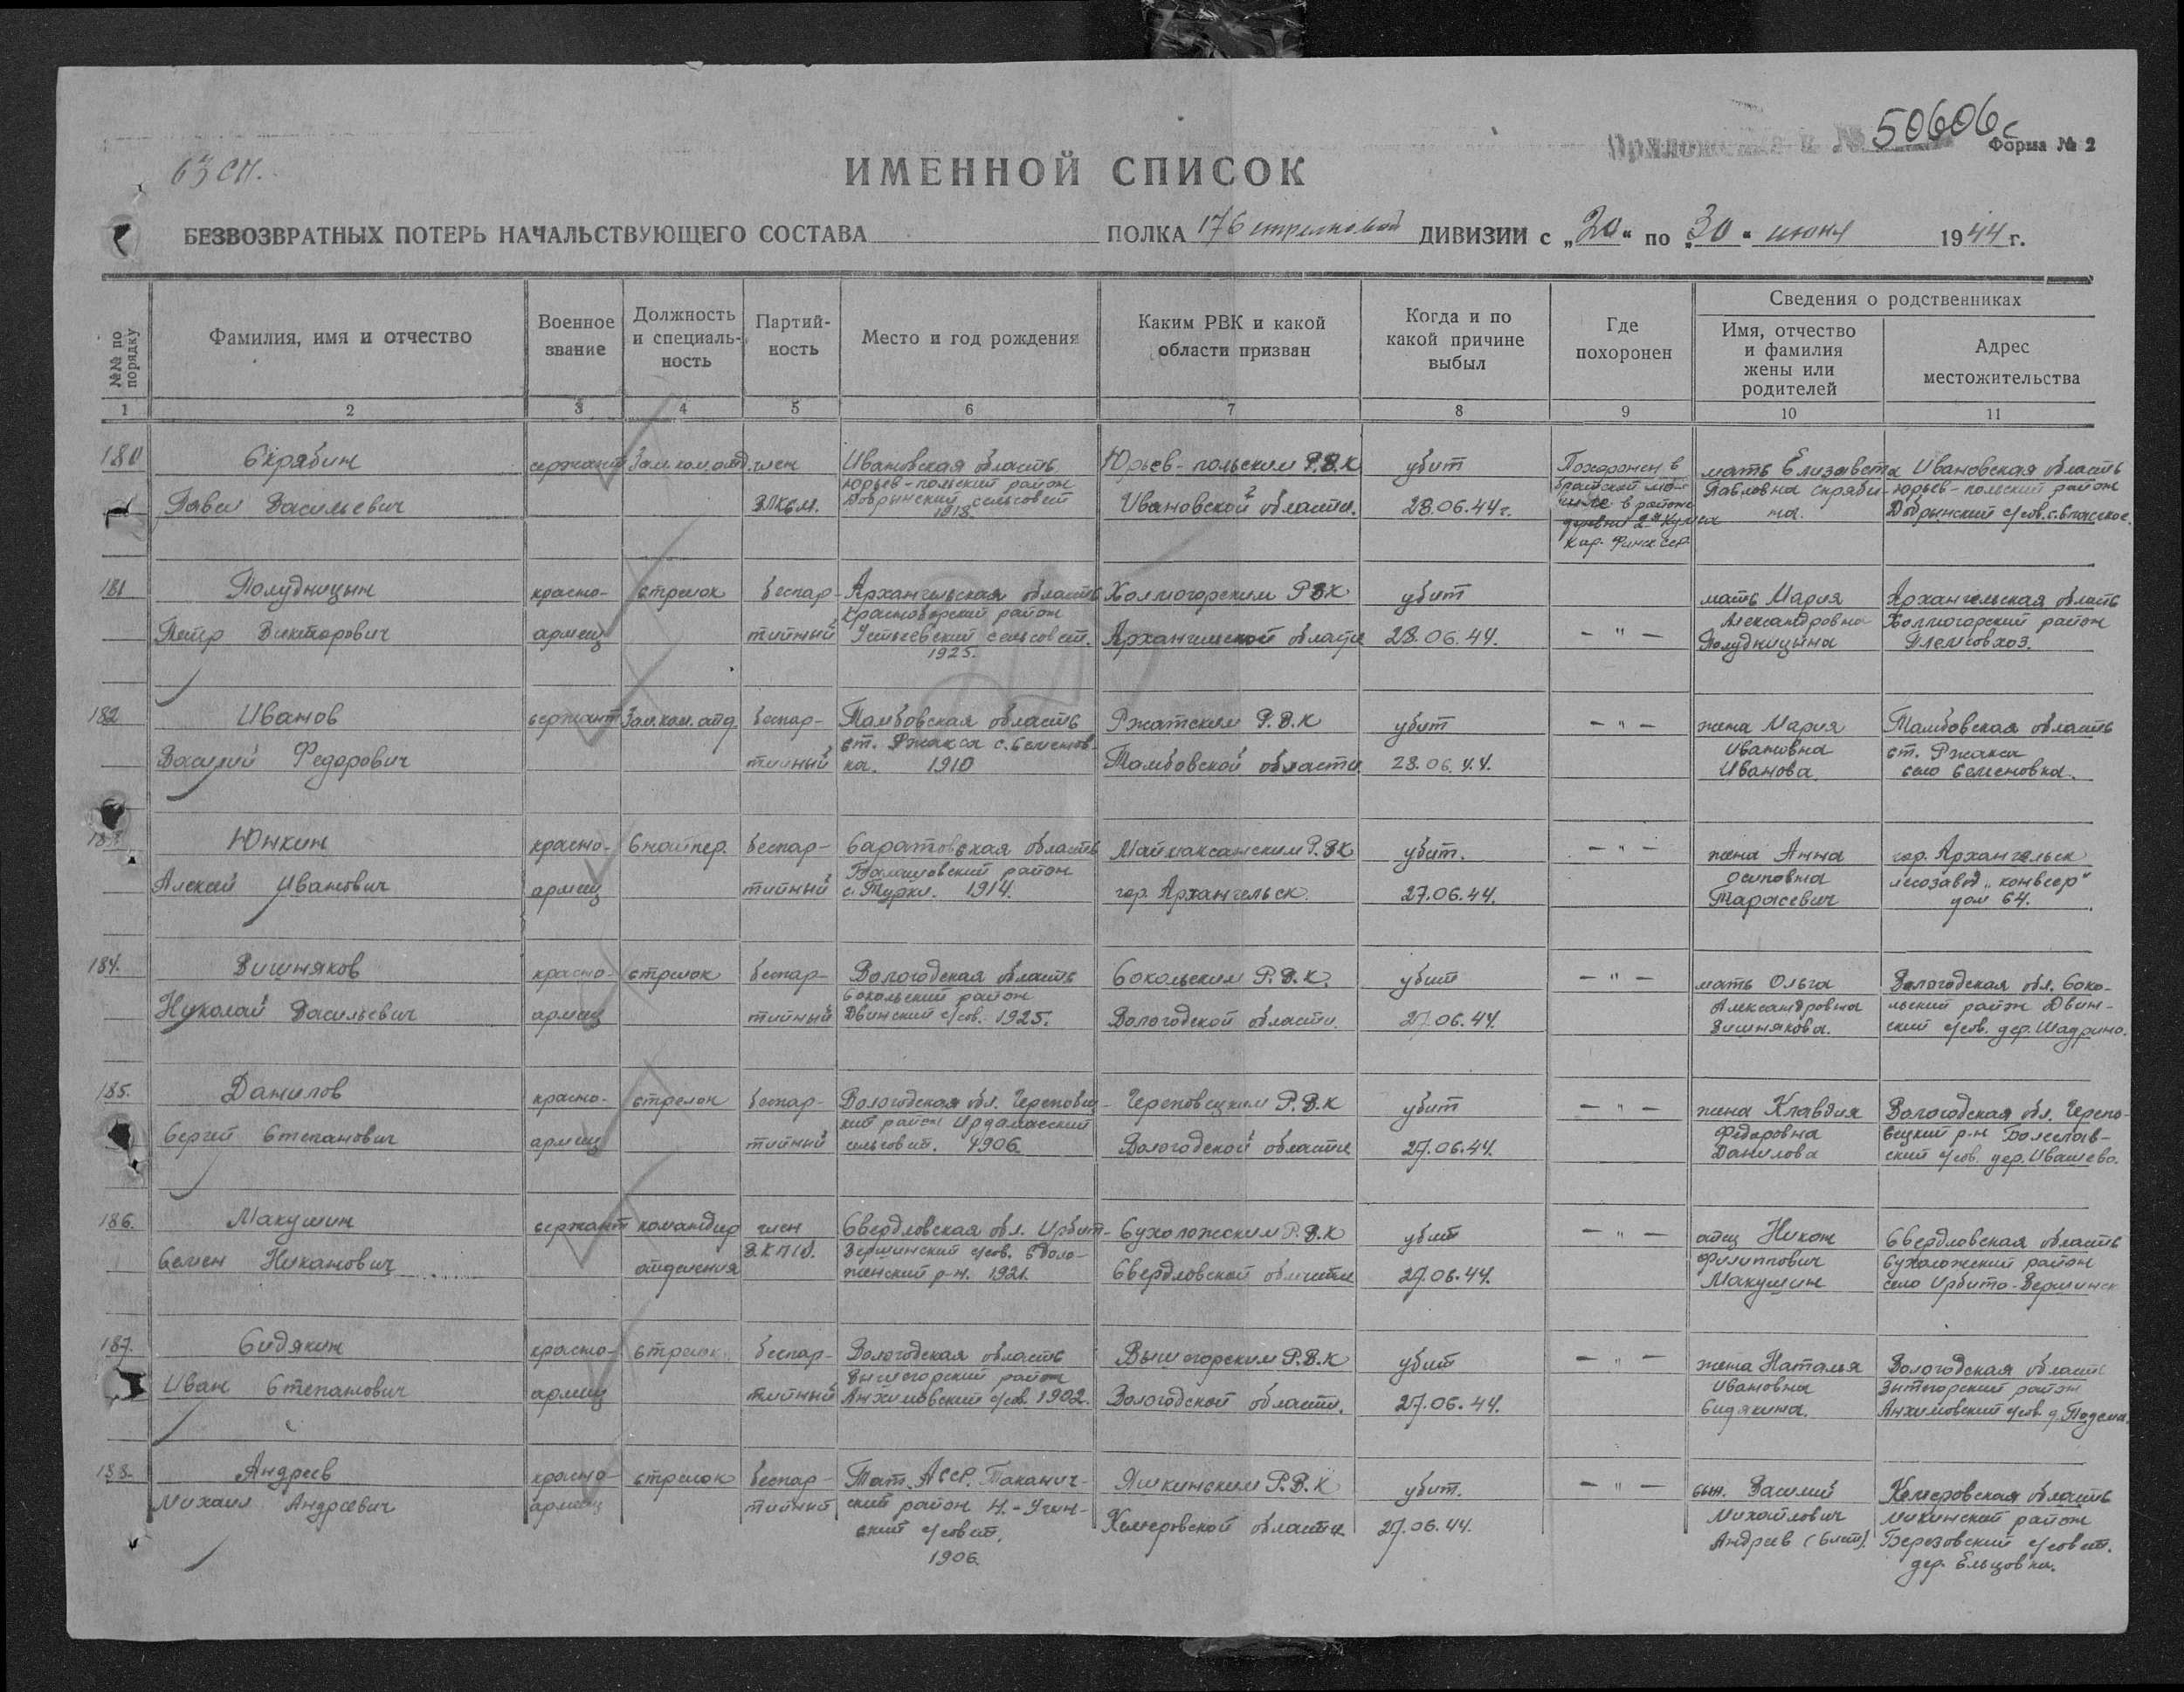 Приложение к № 50606с
Форма № 2
63 сп.
ИМЕННОЙ СПИСОК
БЕЗВОЗВРАТНЫХ ПОТЕРЬ НАЧАЛЬСТВУЮЩЕГО СОСТАВА ПОЛКА 176 стрелковой ДИВИЗИИ с „20“ по „30“ июня 1944 г.
№№ по порядку
Фамилия, имя и отчество
Военное звание
Должность и специальность
Партийность
Место и год рождения
Каким РВК и какой области призван
Когда и по какой причине выбыл
Где похоронен
Сведения о родственниках
Имя, отчество и фамилия жены или родителей
Адрес местожительства
1 2 3 4 5 6 7 8 9 10 11
180 Скрябин сержант Зам.ком.отд. член Ивановская область Юрьев-польским Р.В.К убит Похоронен в мать Елизавета Ивановская область
Юрьев-польский район братской мо- Павловна Скряби- Юрьев-польский район
Павел Васильевич ВЛКСМ. Добрынский сельсовет Ивановской области. 28.06.44г. гиле в районе на. Добрынский с/сов. с. Спасское.
1918 деревни 2я
Кар. Финск ССР
181 Полудницын красно- стрелок беспар- Архангельская область Холмогорским РВК убит мать Мария Архангельская область
Красноборский район Александровна Холмогорский район
Петр Викторович армеец тийный сельсовет. Архангельской области 28.06.44. — " — Полудницына Племсовхоз.
1925.
182 Иванов сержант Зам.ком.отд. беспар- Тамбовская область Ржакским Р.В.К убит — " — жена Мария Тамбовская область
ст. Ржакса с. Семенов- Ивановна ст. Ржакса
Василий Федорович тийный ка. 1910 Тамбовской области 28.06.44. Иванова. село Семеновка.
183 Юнкин красно- Снайпер. беспар- Саратовская область Маймаксанским Р.ВК убит. — " — жена Анна гор. Архангельск
Балашовский район Осиповна лесозавод „конвеер"
Алексей Иванович армеец тийный с. Турки. 1914. гор. Архангельск. 27.06.44. Тарасевич дом 64.
184. Вишняков красно- стрелок беспар- Вологодская область Сокольским Р.В.К. убит — " — мать Ольга Вологодская обл. Соко-
Сокольский район Александровна льский район Двин-
Николай Васильевич армеец тийный Двинский с/сов. 1925. Вологодской области. 27.06.44. Вишнякова. ский с/сов. дер. Шадрино.
185. Данилов красно- стрелок беспар- Вологодская обл. Черепове- Череповецким Р.В.К убит — " — жена Клавдия Вологодская обл. Черепо-
кий район Ирдоматский Федоровна вецкий р-н
Сергей Степанович армеец тийный сельсовет. 1906 Вологодской области 27.06.44. Данилова ский с/сов. дер. Ивашево.
186. Макушин сержант командир член Свердловская обл. Ирбит- Сухоложским Р.В.К убит — " — отец Никон Свердловская область
В.К.П(б). Вершинский с/сов. Филиппович Сухоложский район
Семен Никанович отделения женский р-н. 1921. Свердловской области 27.06.44. Макушин село Ирбито-Вершинск
187. Сидякин красно- стрелок беспар- Вологодская область Вытегорским Р.В.К убит — " — жена Наталья Вологодская область
Вытегорский район Ивановна Вытегорский район
Иван Степанович армеец тийный Анхимовский с/сов. 1902. Вологодской области. 27.06.44. Сидякина. Анхимовский с/сов. д.
188. Андреев красно- стрелок беспар- Тат. АССР. Таканыч- Яшкинским Р.В.К убит. — " — сын. Василий Кемеровская область
Михаил Андреевич армеец тийный ский район Н.-Учин- Михайлович район
ский с/совет. Кемеровской области 27.06.44. Андреев (6 лет). Березовский с/совет.
1906. дер. Ельцовка.